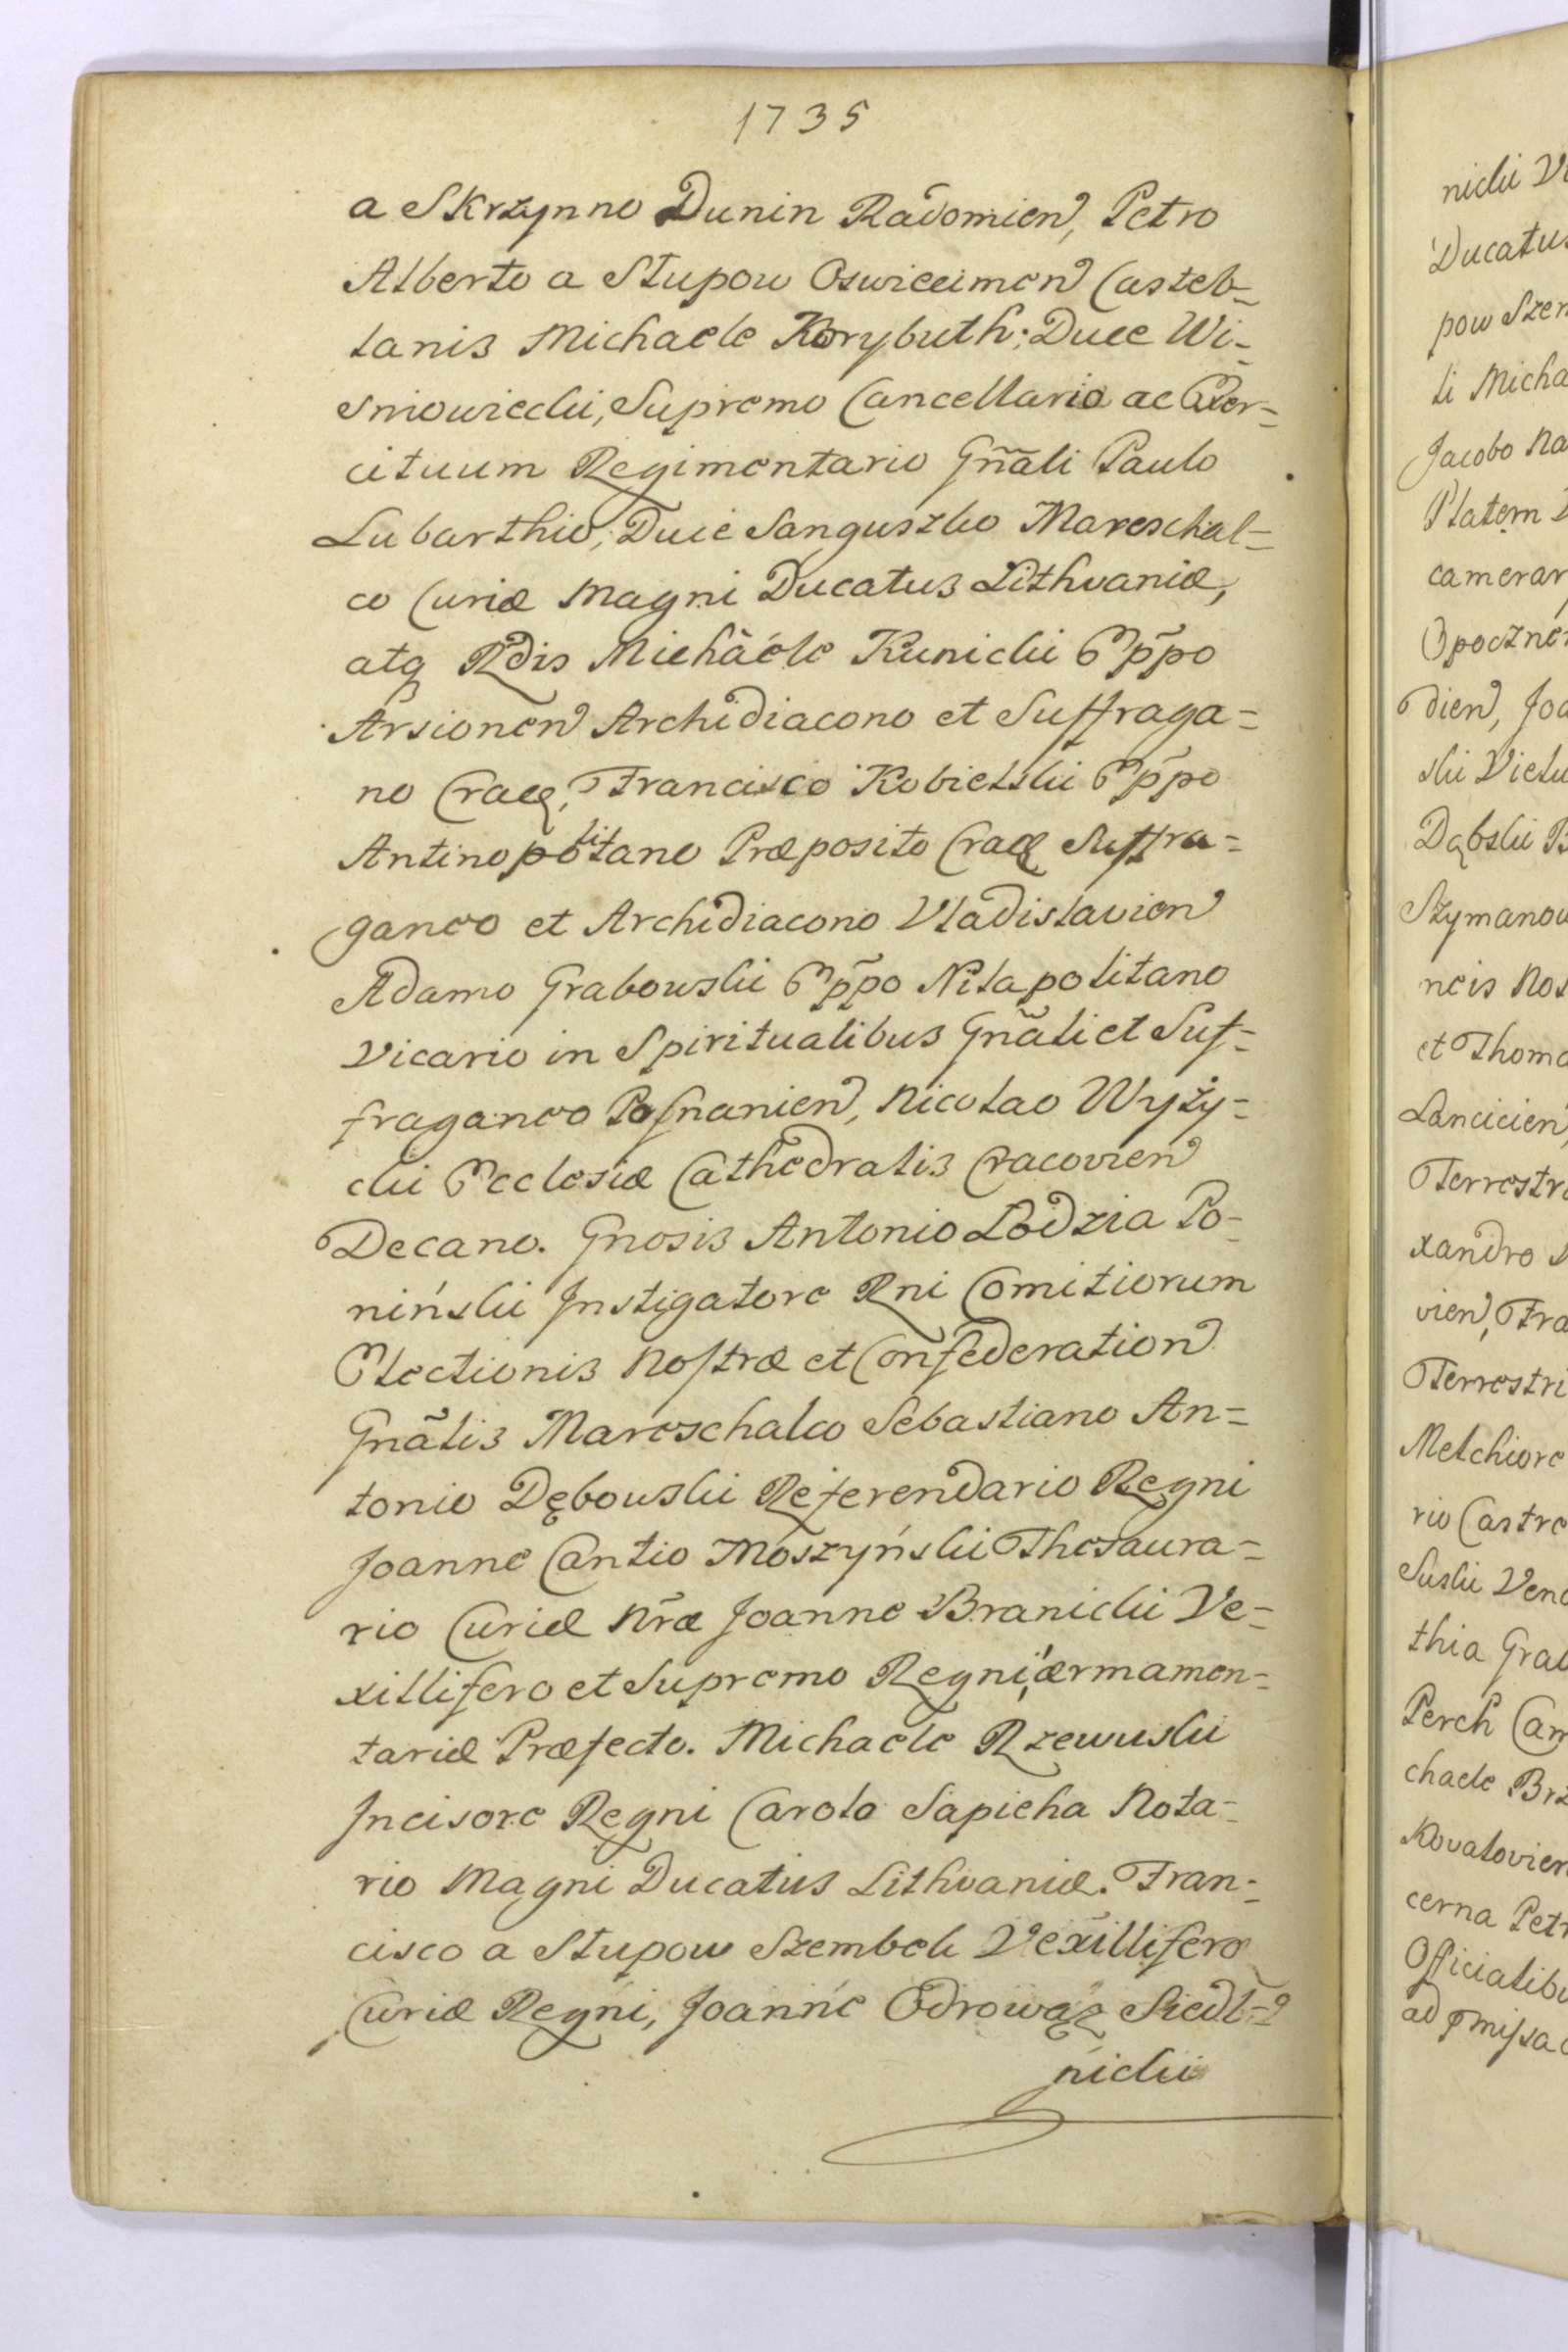 1735
a Skrzynno Dunin Radomien, Petro
Alberto a Słupow Oswiecimen Castel-
lanis Michaele Korybuth: Duce Wi-
sniowiecki, Supremo Cancellario ac Exer-
cituum Regimentario Gñali Paulo
Lubarthio, Duce Sanguszko Mareschal=
co Curiæ Magni Ducatus Lithvaniæ,
atq Rdis Michaele Kunicki Eppo
Arsionen Archidiacono et Suffraga=
no Crac, Francisco Kobielski Eppo
Antinopolitano Præposito Crac Suffra=
ganeo et Archidiacono Vladislavien
Adamo Grabowski Eppo Nilapolitano
Vicario in Spiritualibus Gñali et Suf=
fraganeo Posnanien, Nicolao Wyży=
cki Ecclesiæ Cathedralis Cracovien
Decano. Gnosis Antonio Lodzia Po-
niński Instigatore Rni Comitiorum
Electionis Nostræ et Confederation
Gnãlis Mareschalco Sebastiano An=
tonio Dębowski Referendario Regni
Joanne Cantio Moszyński Thesaura=
rio Curiæ Nræ Joanne Branicki Ve=
xillifero et Supremo Regni, ærmamen=
tariæ Præfecto. Michaele Rzewuski
Incisore Regni Carolo Sapieha Nota-
rio Magni Ducatus Lithvaniæ. Fran-
cisco a Słupow Szembek Vexillifero
Curiæ Regni, Joanne Odrowąz Siedl=
nicki
nicki
Ducatus
pow
li Micha
Jacobo Na
Platern
camerar
Opoczne
dien, Joa
ski Vielu
Dąbski B
Szymanow
neis Nos
et Thoma
Lancicien
Terrestr
xandro
vien, Fra
Terrestri
Melchiore
rio Castre
Suski Vene
thia Grab
Perch Cam
chaele Brz
Kovalovien
cerna Petr
Officialibu
ad pmissa